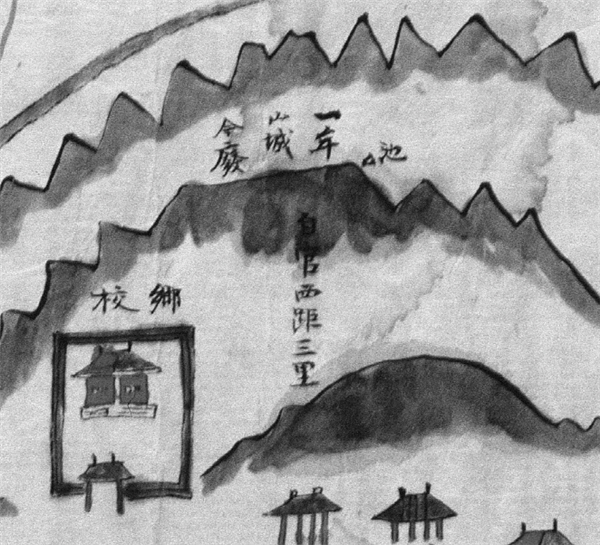 池
一牟
山城
今廢
自官西距三里
鄉校